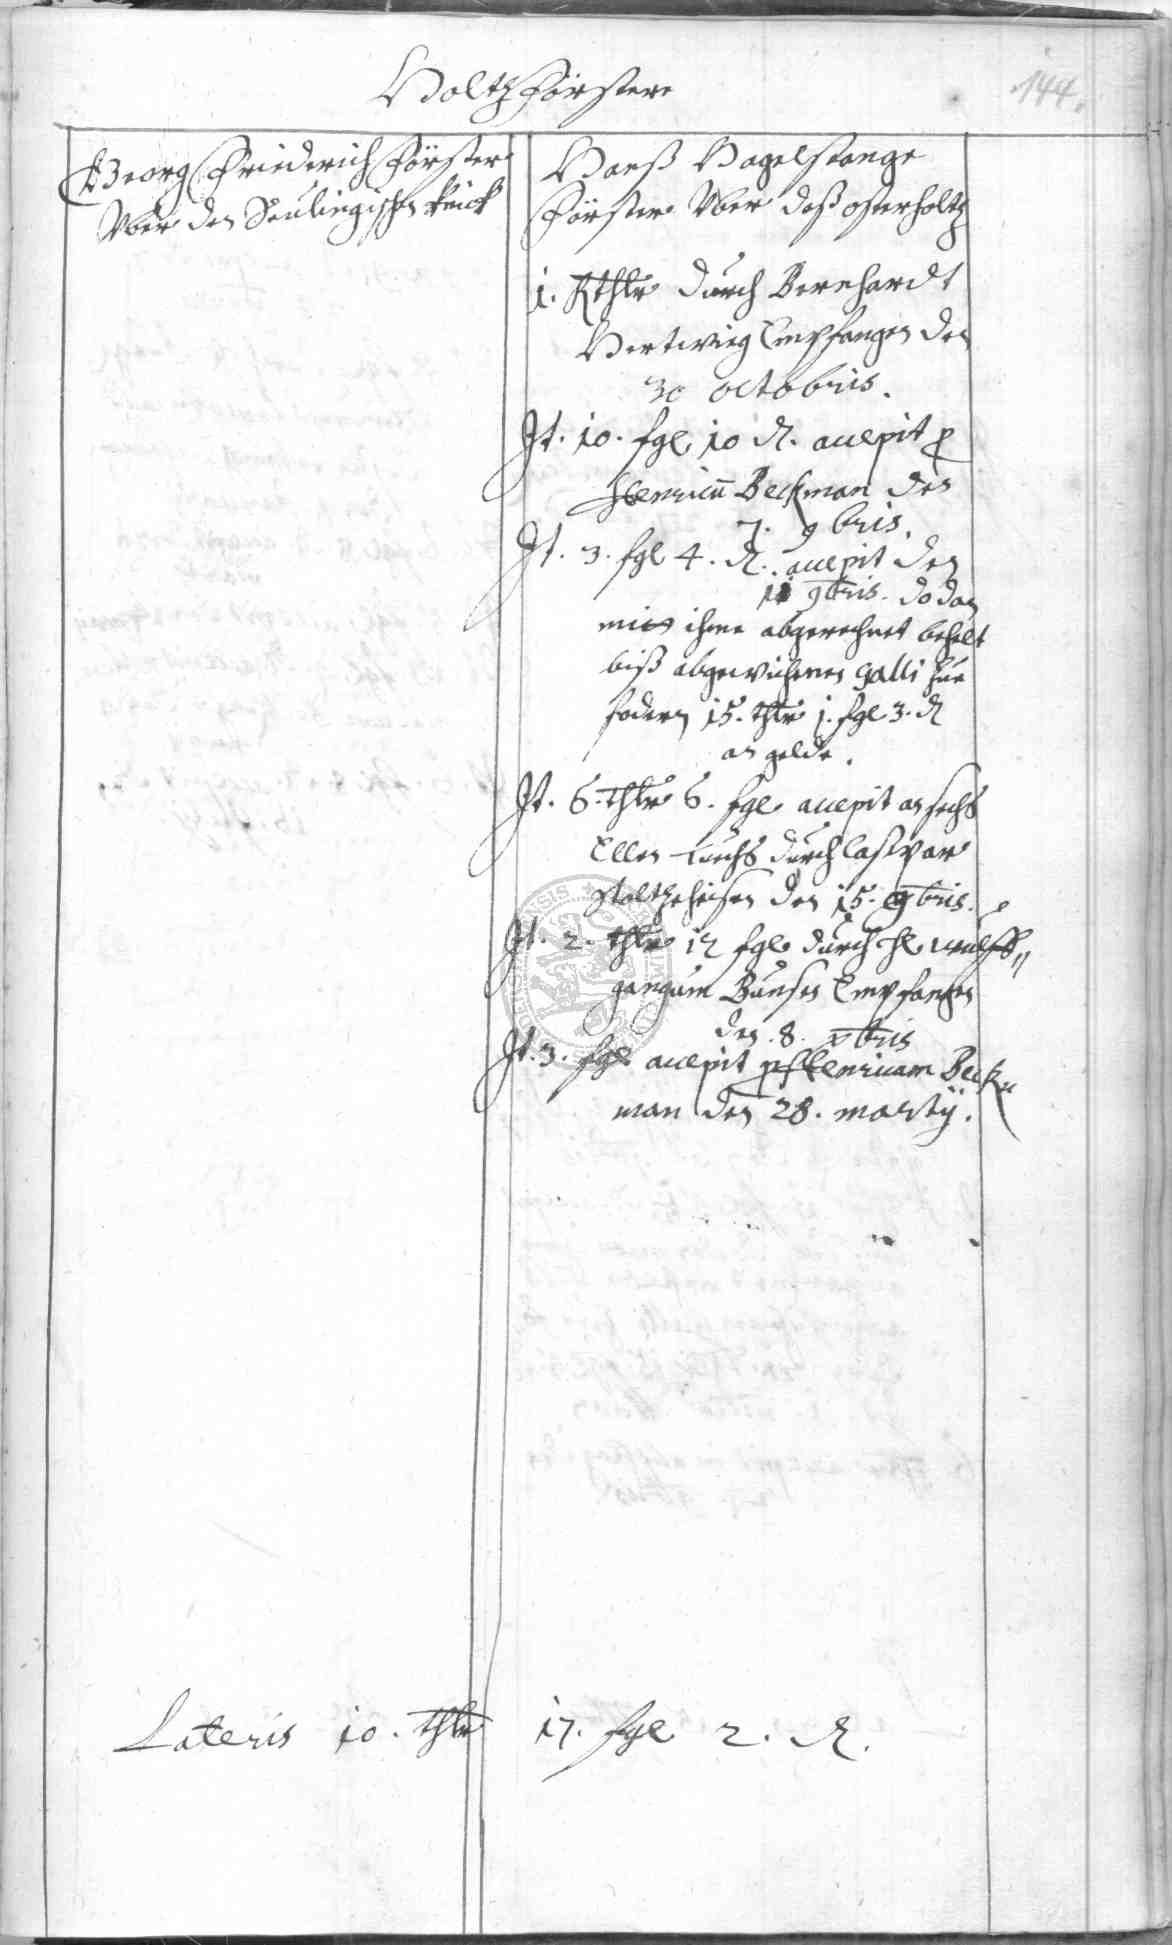 Holtzförstere
144.
Georg Friederich Förster
Vber den Seulingischen knick
Hanß Hagelstange
Förster Vber daß osterholtz
1. Rthlr durch Bernhardt
Hertwieg Empfangen den
30 octobris.
It. 10. fgl 10 d. accepit p
Henricū Beckman den
7. 9bris.
It. 3. fgl 4. d. accepit den
11 9bris. do dan
mit ihme abgerechnet behelt
biß abgewichenen galli zue
fodern 15. thlr 1. fgl 3. d
an gelde.
It. 6. thlr 6. fgl accepit an sechs
Ellen tuchs durch Casper
den 15. 9bris.
It. 2. thlr 12 fgl durch H. Wulff"
gangum Bunsen Empfangen
den 8. xbris
It. 3. fgl accepit p Henricum Beck"
man den 28. martij.
Lateris 10. thlr 17. fgl 2. d.